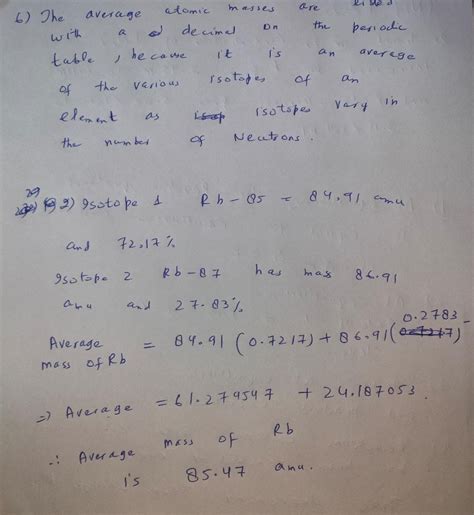 6) The average atomic masses are listed
with a decimal on the periodic
table, because it is an average
of the various isotopes of an
element as isotopes vary in
the number of Neutrons.
29
2) Isotope 1 Rb-85 = 84.91 amu
and 72.17%
Isotope 2 Rb-87 has mass 86.91
amu and 27.83%
0.2783
Average = 84.91 (0.7217) + 86.91 (0.7217)
mass of Rb
=> Average = 61.279547 + 24.187053.
∴ Average mass of Rb
is 85.47 amu.